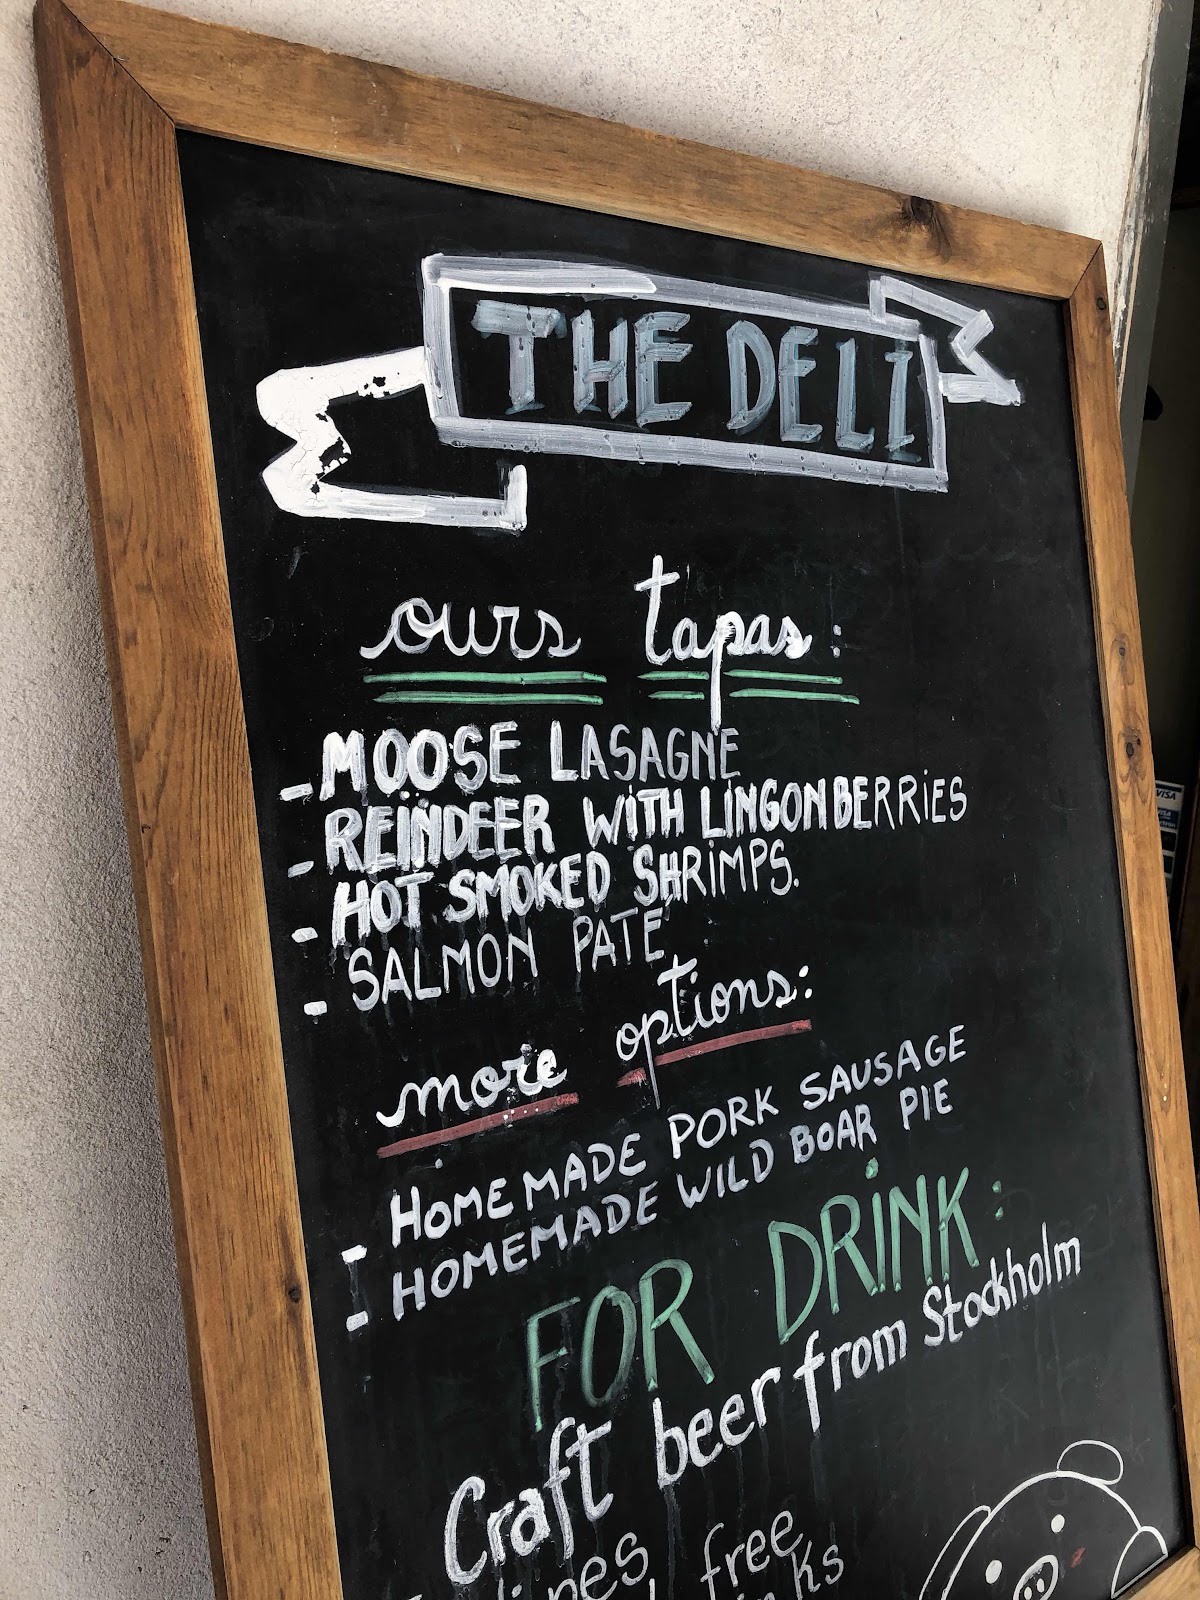 THE DELI
ours tapas:
- MOOSE LASAGNE
- REINDEER WITH LINGONBERRIES
- HOT SMOKED SHRIMPS.
- SALMON PATÉ
more options:
- HOMEMADE PORK SAUSAGE
- HOMEMADE WILD BOAR PIE
FOR DRINK:
Craft beer from Stockholm
free
VISA
VISA